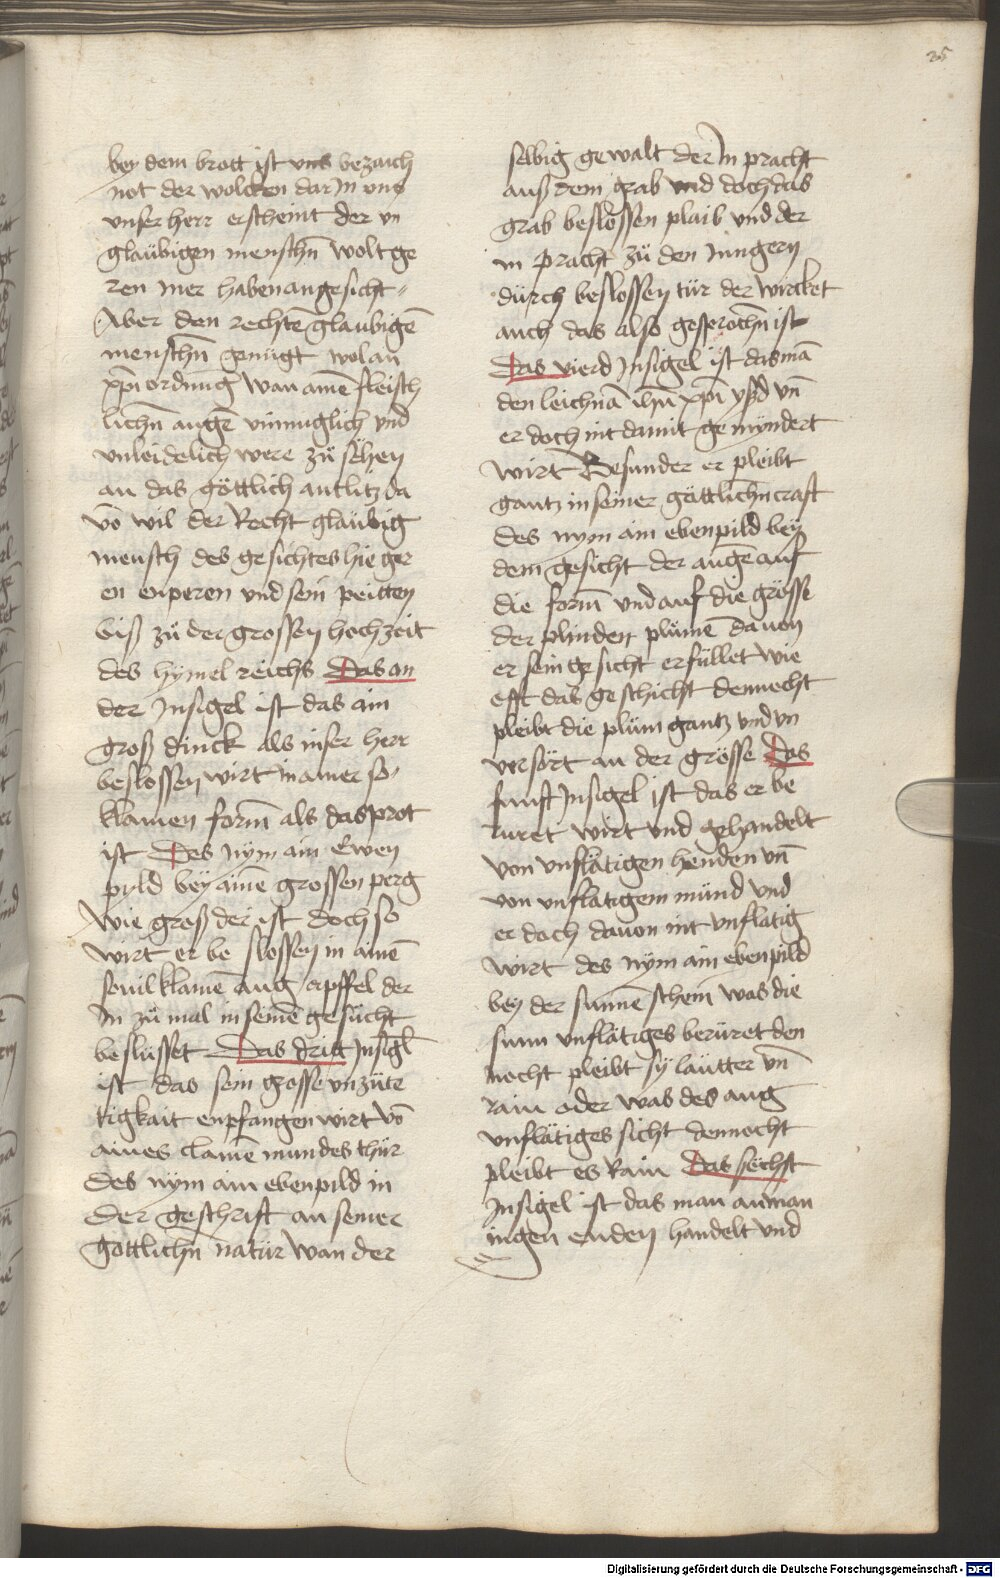 35
bey dem brott ist uns bezaich
not der wolcken dar in uns
unser herr erscheint der un
glaübigen menschn̄ wolt ge
ren mer haben angesicht
Aber den rechtē glaubigē
menschn̄ genügt wol an
xp̄i ordnung wan ainē fleisch
lichn̄ augē unmuglich und
unleidelich were zü sehen
an das göttlich antlitz da
vō wil der Recht glaübig
mensch des gesichtes hie ger
en enperen und sein peitten
biß zü der grossen hochzeit
des hymel reichs Das an
der Insigel ist das ain
groß dinck als unser herr
beslossen wirt in ainer so
klainen form̄ als das prot
ist Des nÿm ain Ewen
pyld beÿ ainē grossen perg
wie groß der ist doch so
wirt er be slossen in ainē
sovil klainē aug apffel der
In zü mal in seinē gesücht
beslüsset Das dritt Insigl̄
ist das sein grosse unzüte
tigkait enpfangen wirt vō
aines clainē mundes thür
Des nÿm ain ebenpild in
Der geschrift an seiner
göttlichn̄ natür wan der
selbig gewalt der In pracht
auß dem grab und doch das
grab beslossen plaib und der
in pracht zü den Jungern
dürch beslossen tür der wircket
auch das also gesprochn̄ ist
Das vierd Insigel ist das mā
den leichnā ih̄u xp̄i ysßd un̄
er doch nit damit gemyndert
wirt Besunder er pleibt
gantz in seiner göttlichn̄ craft
des nym ain ebenpild beÿ
dem gesicht der augē auf
die form̄ und auf die grösse
der plinden plümē davon
er sein gesicht erfüllet wie
offt das geschicht dennocht
pleibt die plüm gantz und un
versört an der grösse Das
funft Insigel ist das er be
ruret wirt und gehandelt
von unflätigen henden un̄
von unflätigem mund und
er doch davon nit unflatig
wirt des nÿm ain ebenpild
bey der sunnē schein was die
sunn unflätiges berüret den
nocht pleibt sÿ laütter un̄
rain oder was des aug
unflätiges sicht dennocht
pleibt es Rain Das sechst
Insigel ist das man an man
ingen enden handelt und
Digitalisierung gefördert durch die Deutsche Forschungsgemeinschaft - DFG